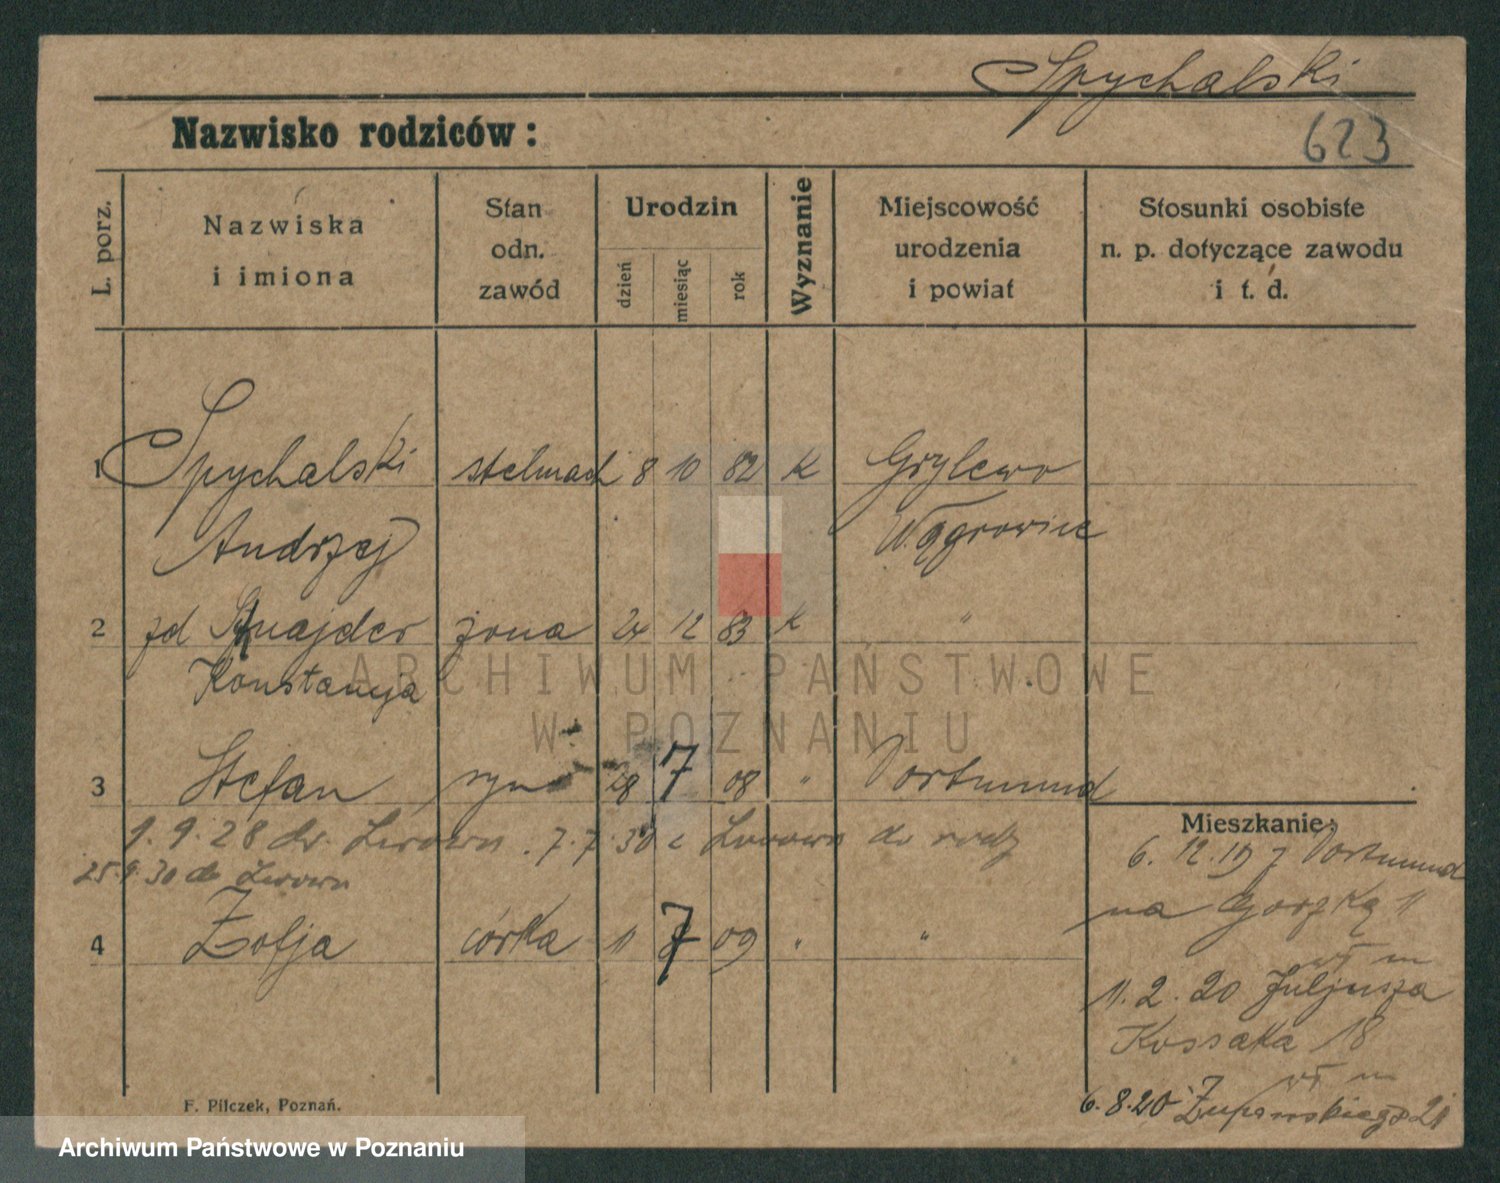 Spychalski
Nazwisko rodziców:
623
L. porz.
Nazwiska
i imiona
Stan
odn.
zawód
Urodzin
dzień
miesiąc
rok
Wyznanie
Miejscowość
urodzenia
i powiat
Stosunki osobiste
n. p. dotyczące zawodu
i t. d.
1 Spychalski stelmach 8 10 82 K Grylewo
Andrzej Wągrowiec
2 zd Sznajder żona 24 12 83 K "
Konstancja
ARCHIWUM PAŃSTWOWE
W POZNANIU
3 Stefan syn 28 7 08 " Dortmund
1.9.28 do Lwowa. 7.7.30 z Lwowa do rodz
25.9.30 do Lwowa
4 Zofja córka 11 7 09 " "
Mieszkanie:
6.12.19 z Dortmund
na Górską 11
wł m
11.2.20 Juljusza
Kossaka 18
wł m
6.8.20 Żupańskiego 21
F. Pilczek, Poznań.
Archiwum Państwowe w Poznaniu